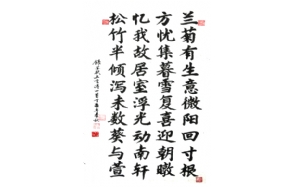 兰菊有生意微阳回寸根
方忧集暮雪复喜迎朝暾
忆我故居室浮光动南轩
松竹半倾泻未数葵与萱